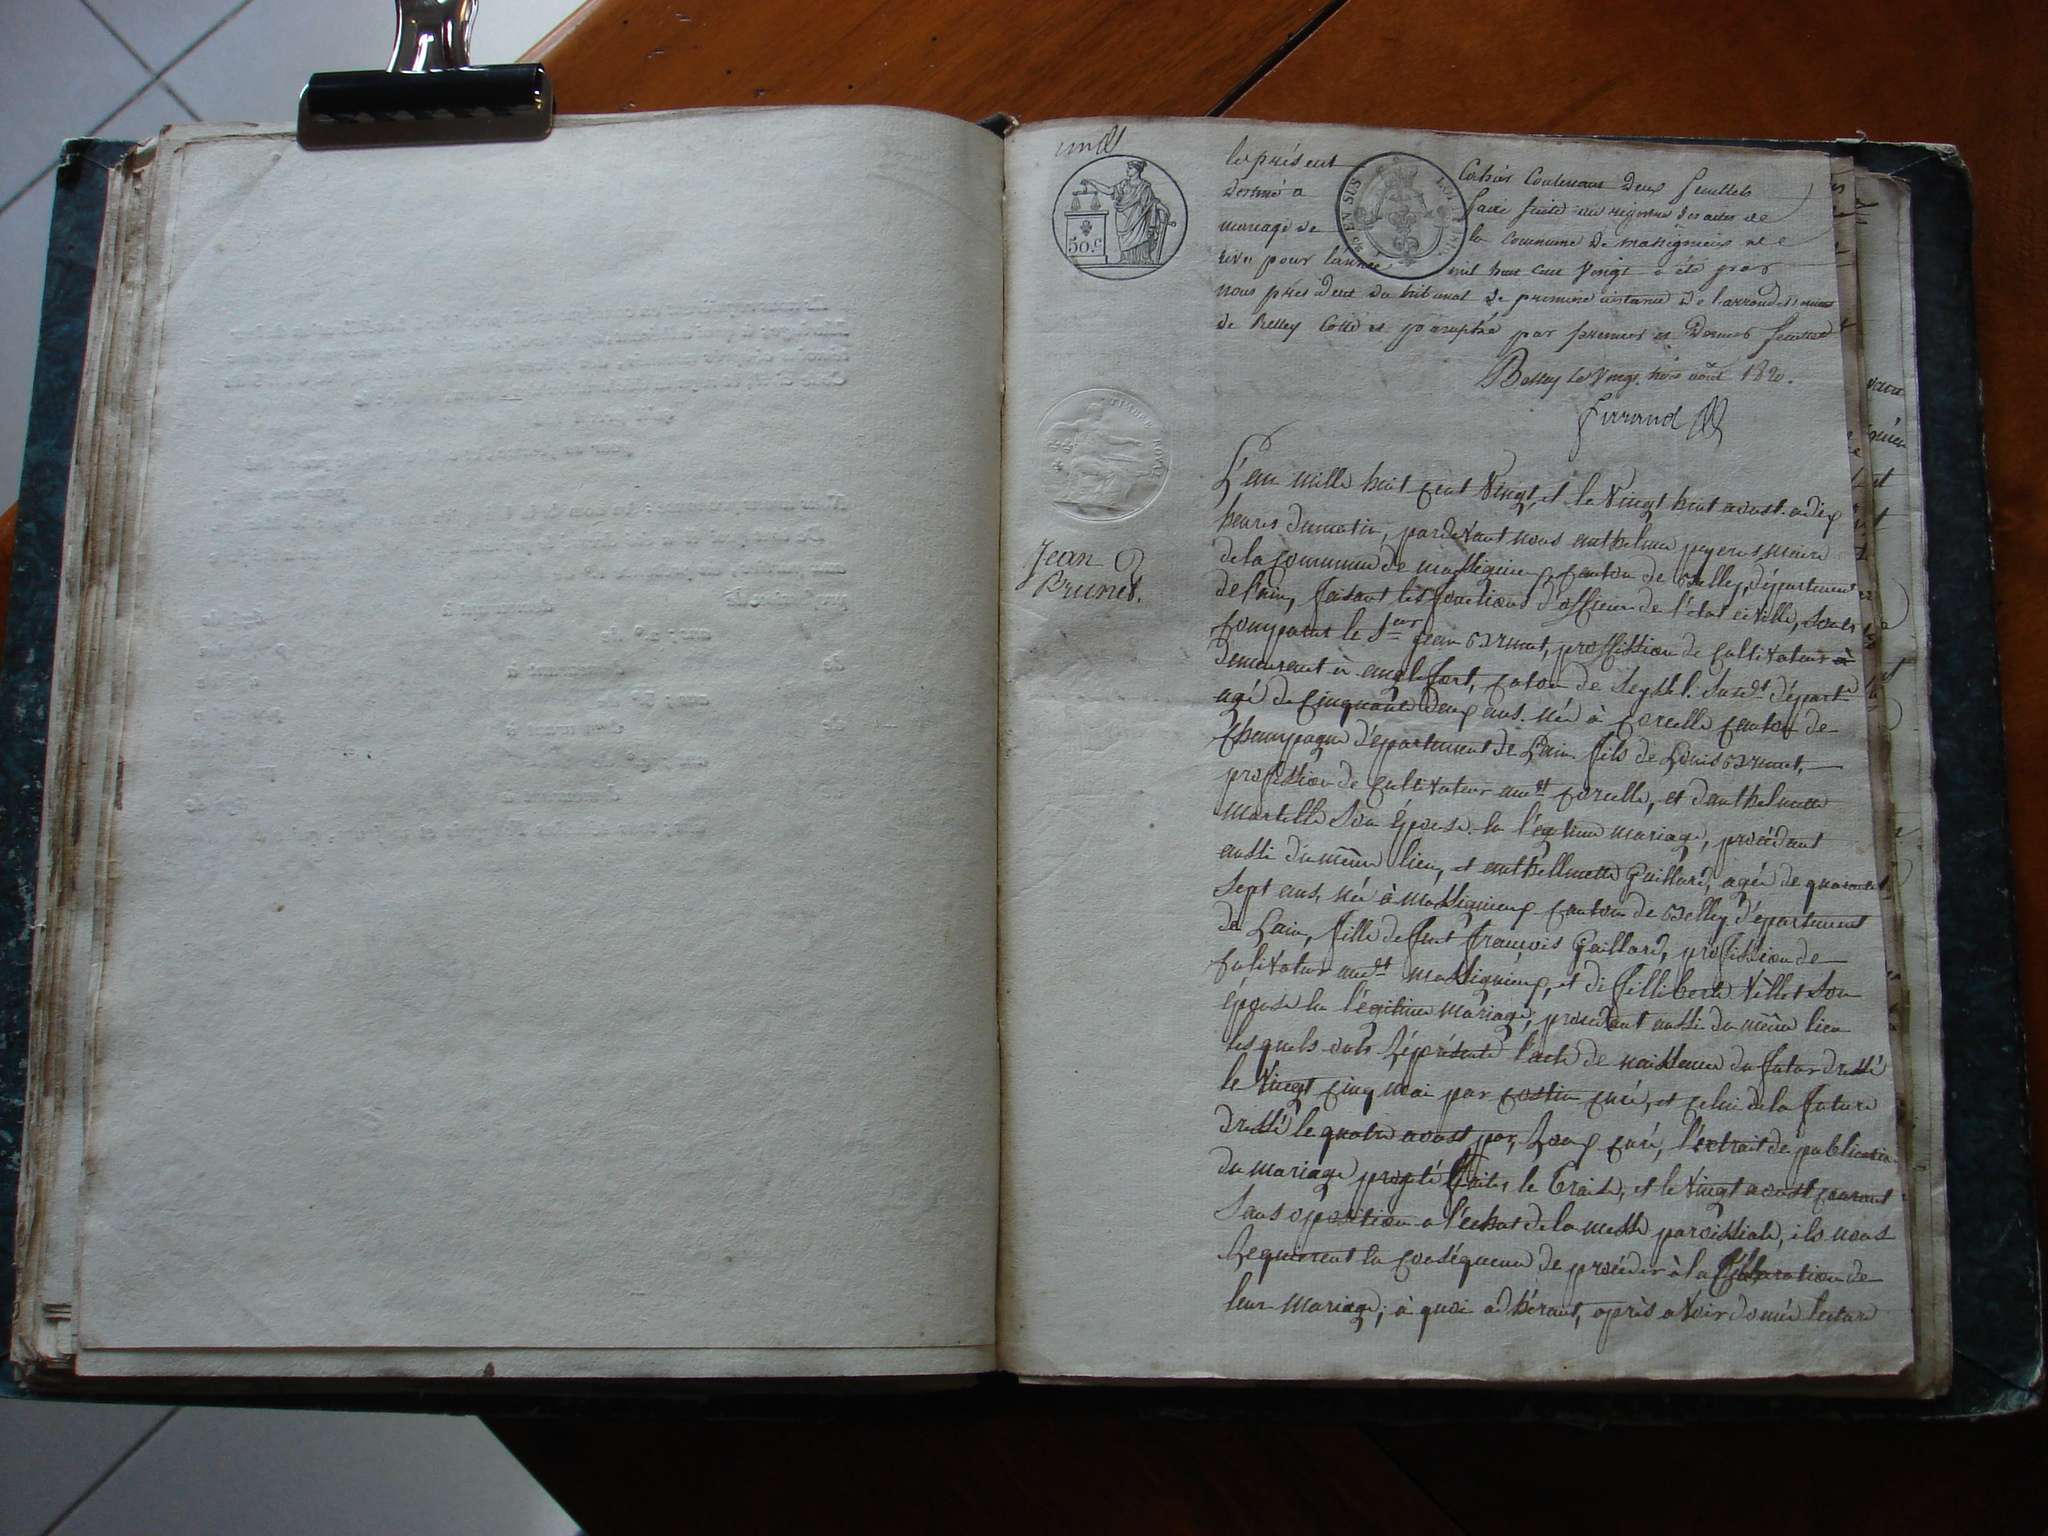 50.c
EN SUS
TIMBRE ROYAL
Jean
Brunet.
le présent Cahier Contenant Deux feuillets
Destiné a faire suite au registre des actes de
mariage de la Commune de massignieux de
rive pour l'année mil huit Cent Vingt a été par
nous président du tribunal de première instance De l'arrondissement
de Belley Cotté et paraphé par premier et Dernier feuillet
Belley Le Vingt trois août 1820.
L'an mille huit cent Vingt, et le Vingt huit avoust a dix
heures du matin, pardevant nous anthelme peyeros maire
de la Commune de massignieux, canton de Belley, département
de l'ain, faisant les fonctions d'officier de l'état civille, sont
comparus le Sieur Jean Brunet, proffission de cultivateur
demeurant à anglefort, canton de Seyssel. Susdt départt
agé de Cinquante deux ans. née à corcelle canton de
Champagne département de L'ain. fils de Louis Brunet,
profission de cultivateur audt corcelle, et d'anthelmette
Martelle Son épouse en légitime mariage, procédant
aussi du même lieu, et anthellmette Gaillard, agée de quarante
sept ans, née à massignieux canton de Belley département
de L'ain, fille de feut françois Gaillard, profission de
culivateur audt massignieux, et de fillíberte Villet Son
épouse en légitime mariage, procedant aussi du même lieu
lesquels ont Représenté l'acte de naissance du futur dressé
le Vingt cinq mai par costin curé, et celui de la future
dressé le quatre avoust par Roux curé, l'extrait de publication
du mariage projeté faites le traise, et le Vingt avoust courant
Sans oposition a l'echut de la messe paroissiale, ils nous
Requierent en conséquence de procéder à la Célébration de
leur Mariage; à quoi adhérant, après avoir donné lecture